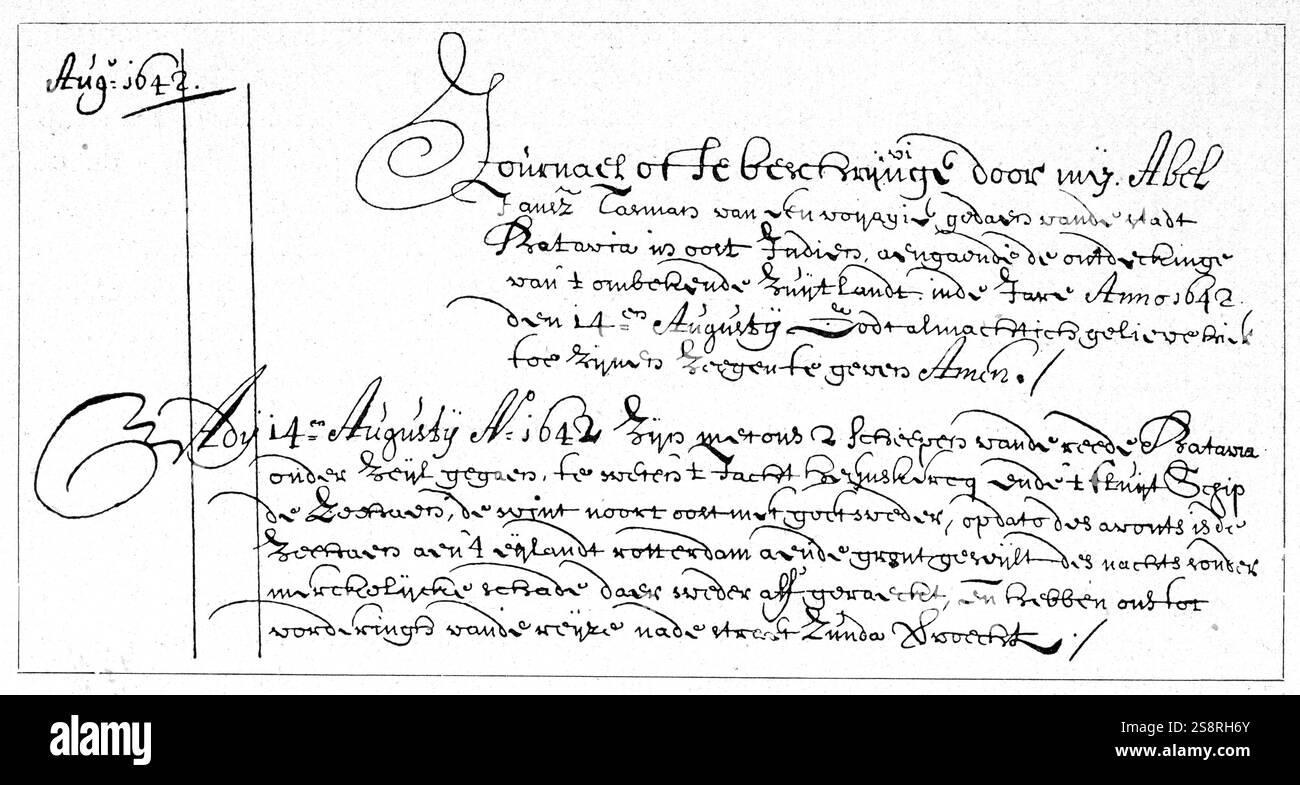 Augú: 1642.
Journael ofte beschrijvinge door mij. Abel
Jansz Tasman van een voijagie gedaen vande stadt
Batavia in oost Indien, aengaende de ontdeckinge
van 't onbekende Zuijtlandt. inde Jare Anno 1642.
den 14en Augustij Godt almachtich gelieve hier
toe Zijnen Zeegen te geven Amen./
Adij 14en Augustij Ao 1642 Zijn met ons 2 scheepen vande reede Batavia
onder Zeijl gegaen, te weten 't Jacht Heemskercq ende 't fluijt Schip
de Zeehaen, de wint noort oost met goet weder, op dato des avonts is de
Zeehaen aen 't eijlandt rotterdam aende gront geseijlt des nachts sonder
merckelijcke schade daer weder aff geraeckt, en hebben ons tot
vorderingh vande reijze nade straet Zunda
alamy
Image ID: 2S8RH6Y
www.alamy.com